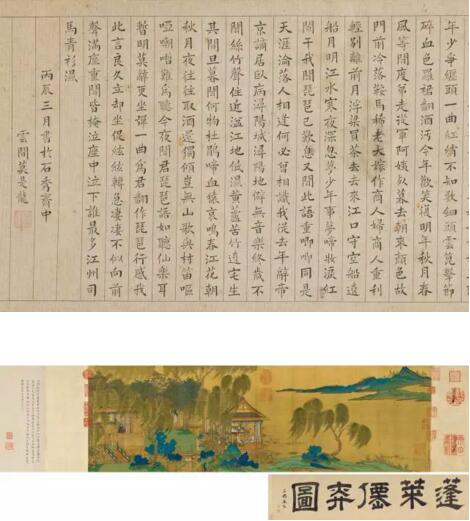 年少爭纏頭一曲紅綃不知數鈿頭雲篦擊節
碎血色羅裙翻酒污今年歡笑復明年秋月春
風等閒度弟走從軍阿姨死暮去朝來顏色故
門前冷落鞍馬稀老大嫁作商人婦商人重利
輕別離前月浮梁買茶去去來江口守空船遶
船月明江水寒夜深忽夢少年事夢啼妝淚紅
闌干我聞琵琶已歎息又聞此語重唧唧同是
天涯淪落人相逢何必曾相識我從去年辭帝
京謫居臥病潯陽城潯陽地僻無音樂終歲不
聞絲竹聲住近湓江地低濕黃蘆苦竹遶宅生
其間旦暮聞何物杜鵑啼血猿哀鳴春江花朝
秋月夜往往取酒還獨傾豈無山歌與村笛嘔
啞嘲哳難為聽今夜聞君琵琶語如聽仙樂耳
暫明莫辭更坐彈一曲為君翻作琵琶行感我
此言良久立却坐促絃絃轉急凄凄不似向前
聲滿座重聞皆掩泣座中泣下誰最多江州司
馬青衫濕
丙辰三月書於石秀齋中
雲間莫是龍
蓬萊僊弈圖